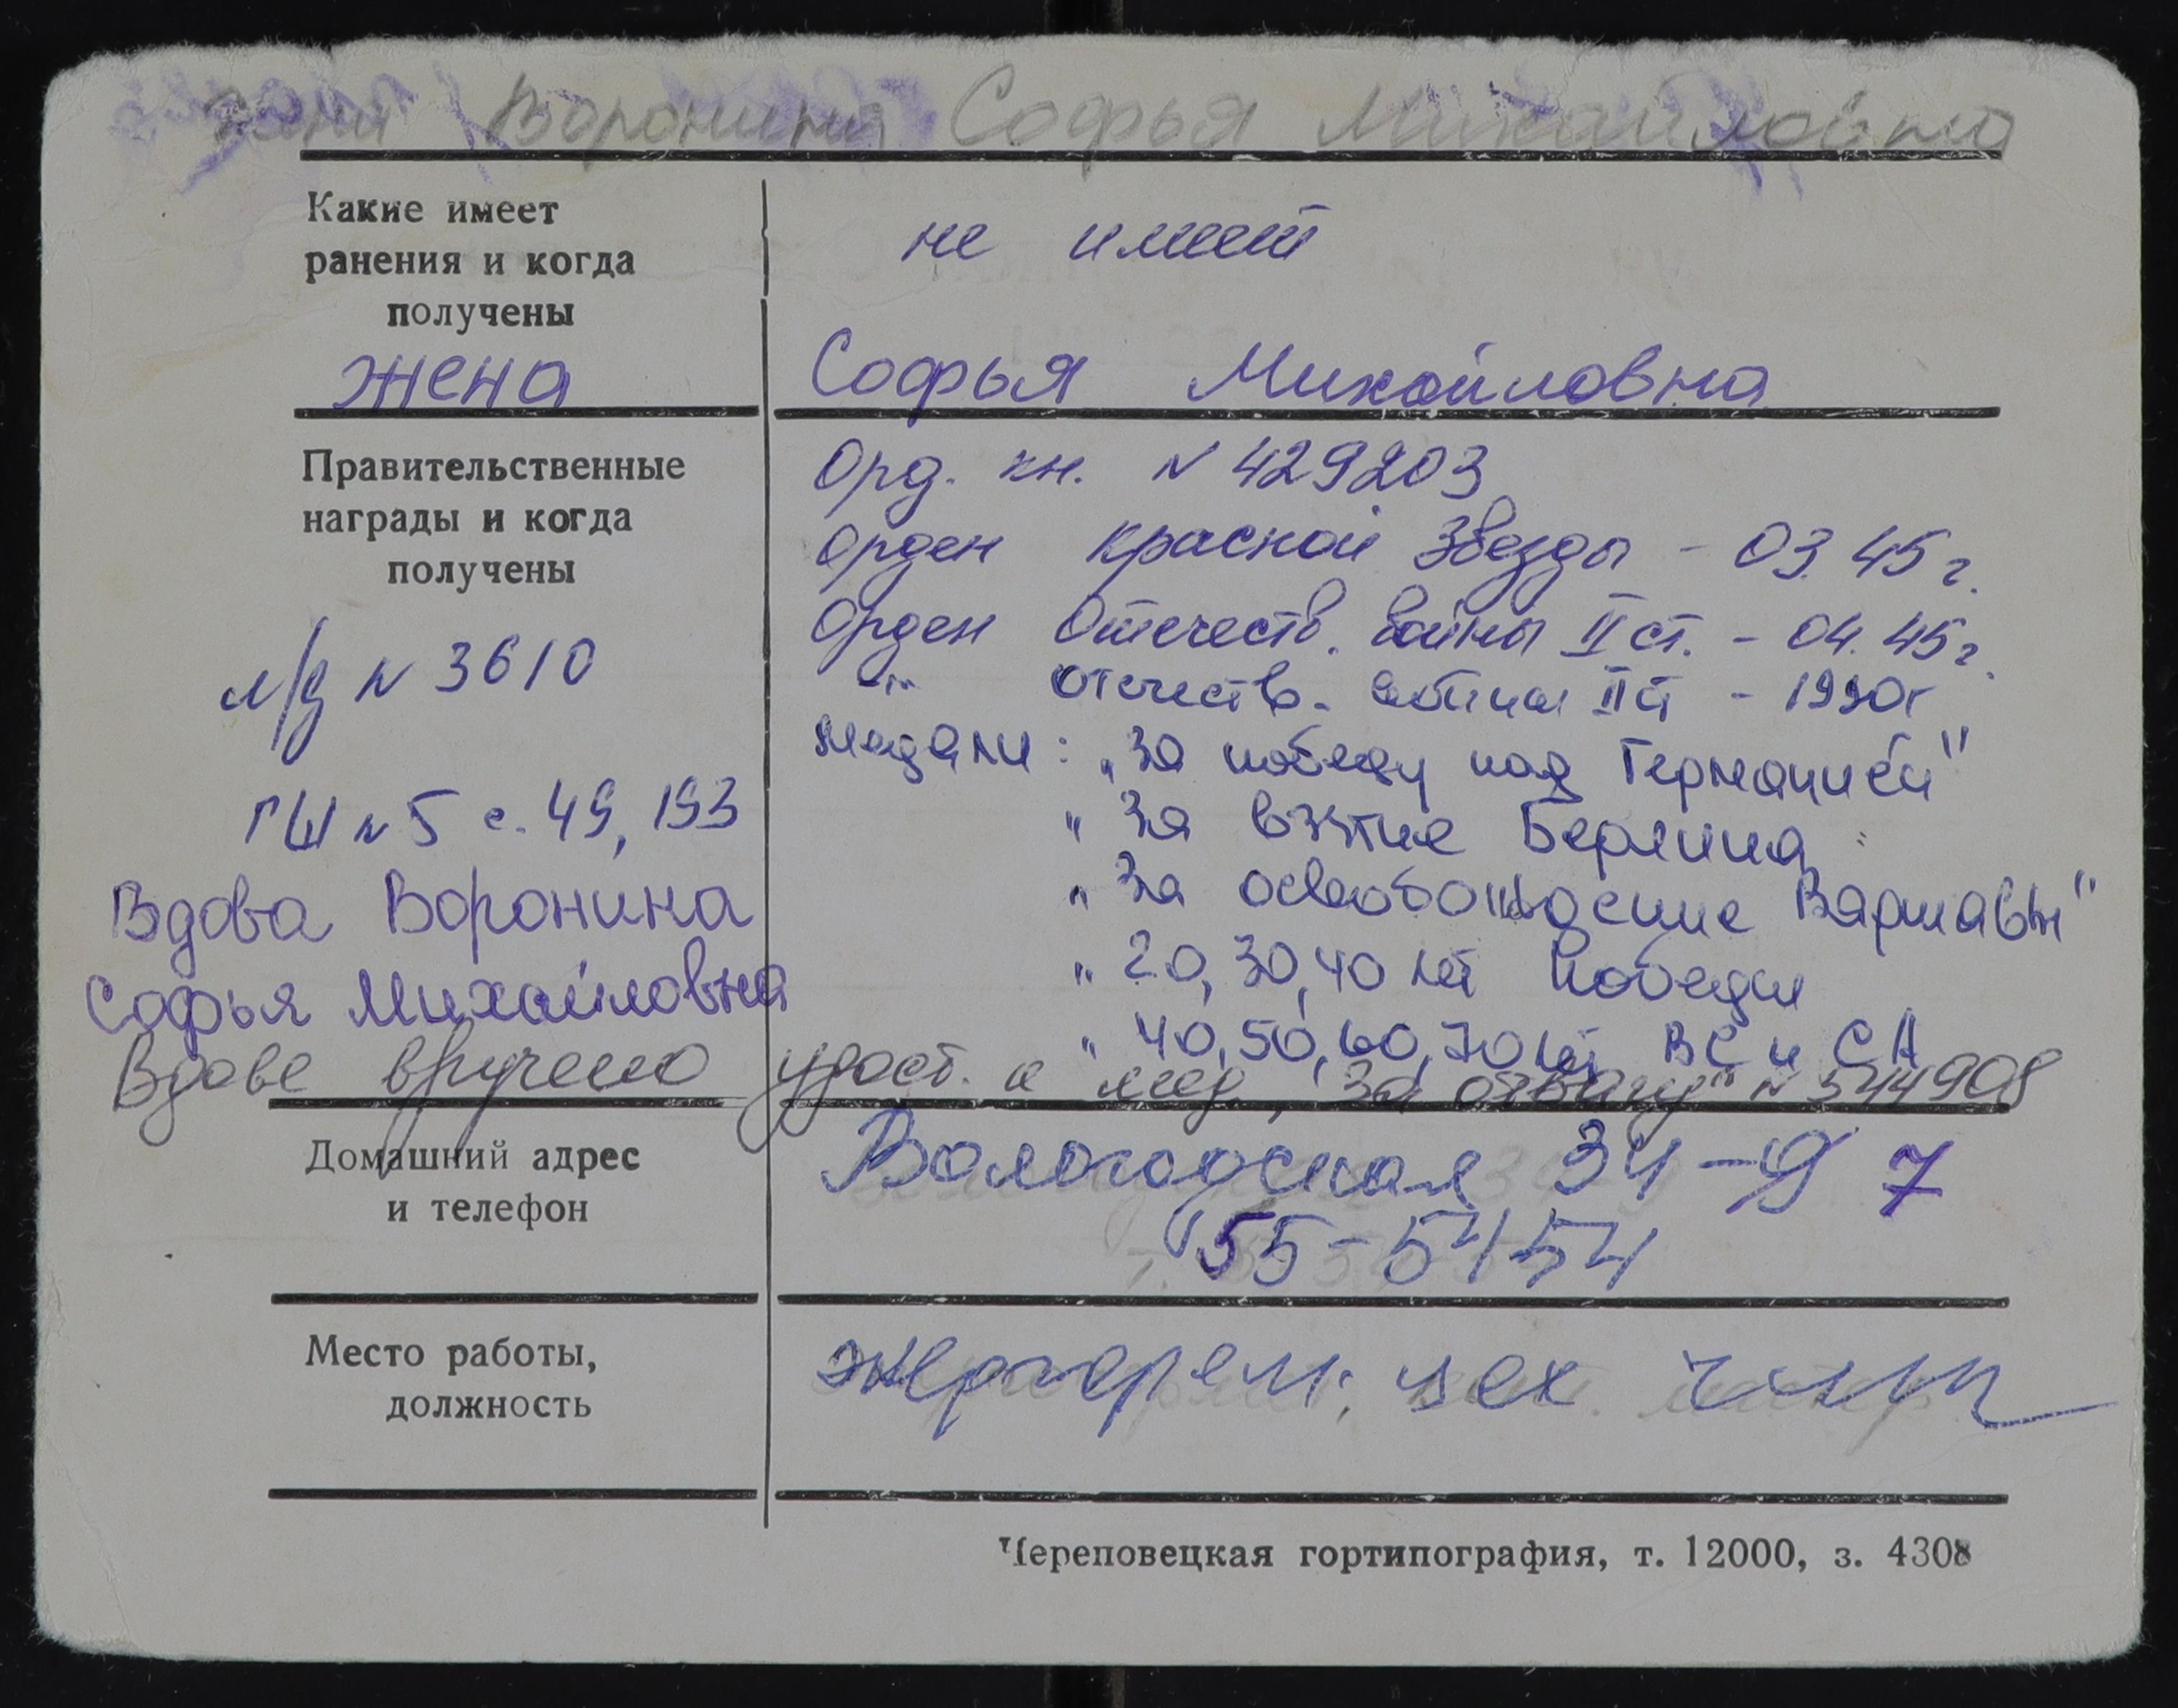 Воронина Софья Михайловна
Какие имеет
ранения и когда
получены
не имеет
жена
Софья Михайловна
Правительственные
награды и когда
получены
Орд. кн. N 429203
Орден Красной Звезды - 03.45 г.
Орден Отечеств. войны II ст. - 04.45 г.
-"- Отечеств. войны II ст - 1990г
медали: "За победу над Германией"
" За взятие Берлина
" За освобождение Варшавы"
" 20, 30, 40 лет Победы
" 40, 50, 60, 70 лет ВС и СА
л/д N 3610
ГШ N 5 с. 49, 193
Вдова Воронина
Софья Михайловна
Вдове вручено удост. к мед. "За отвагу" N 544908
Домашний адрес
и телефон
Вологодская 34-9 7
55-54-54
Место работы,
должность
цех
Череповецкая гортипография, т. 12000, з. 4308